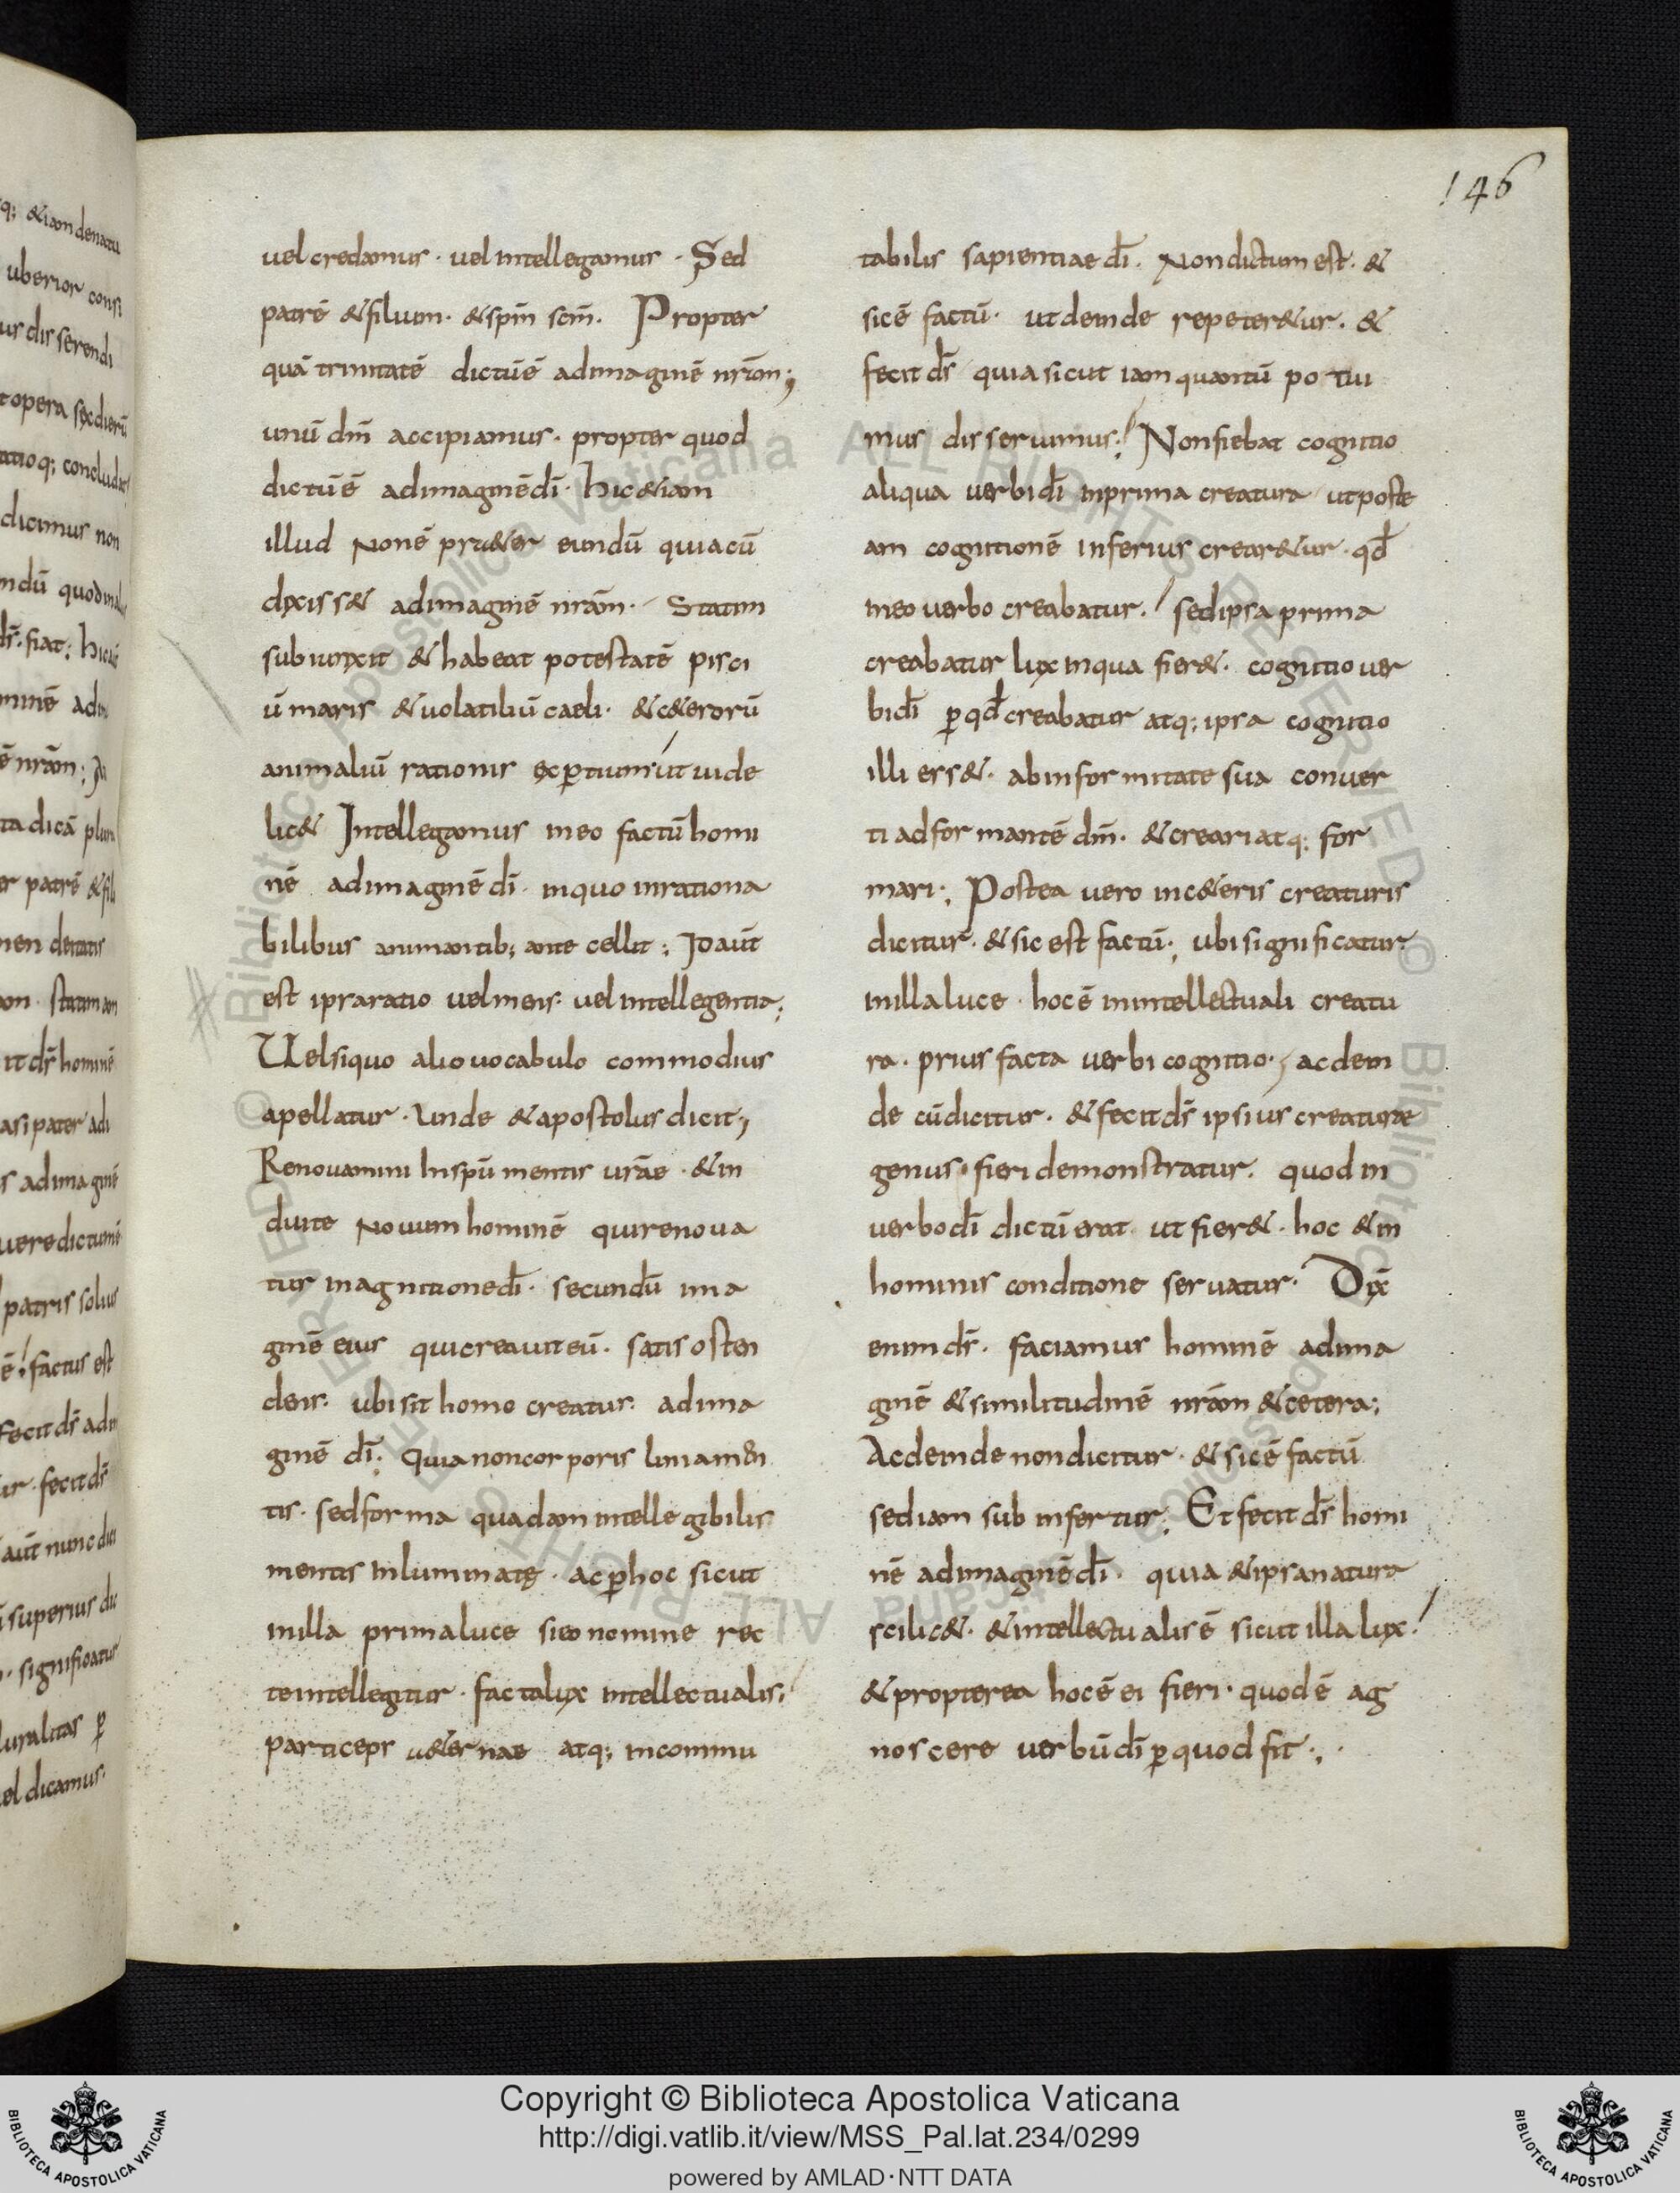 146
uel credamus · uel intellegamus · Sed
patrē & filium · & spm̄ scm̄. Propter
quā trinitatē dictūē adimaginē nrām;
unū dm̄ accipiamus · propter quod
dictūē adimaginē dī · hic &iam
illud Nonē pr&er eundū quiacū
dixiss& adimaginē nrām · Statim
subiunxit & habeat potestatē pisci
ū maris & uolatiliū caeli · & c&erorū
animaliū rationis expertium · ut uide
lic& Intellegamus ineo factū homi
nē adimaginē dī · inquo inrationa
bilibus animantib; ante cellit; Id aūt
est ipsa ratio uel mens: uel intellegentia;
Uel siquo alio uocabulo commodius
apellatur · Unde & apostolus dicit;
Renouamini In spū mentis urāe · & in
duite Nouum hominē qui renoua
tur inagnitione dī · secundū ima
ginē eius qui creauit eū · satis osten
dens · ubi sit homo creatus · adima
ginē dī; Quia non corporis liniamen
tis · sed forma quadam intellegibilis
mentis Inluminatę · ac phoc sicut
inilla prima luce si eo nomine rec
te intellegitur · facta lux intellectualis;
particeps &ernae atq; incommu
tabilis sapientiae dī · Non dictum est · &
sicē factū · ut deinde repeter&ur · &
fecit ds̄ quia sicut iam quantū potui
mus disseruimus; Non fiebat cognitio
aliqua uerbi dī inprima creatura ut poste
am cognitionē inferius crear&ur · qd̄
ineo uerbo creabatur · sed ipsa prima
creabatur lux inqua fier& · cognitio uer
bi dī p qd̄ creabatur atq; ipsa cognitio
illi ess& · ab informitate sua conuer
ti ad formantē dm̄ · & creari atq; for
mari; Postea uero in c&eris creaturis
dicitur · & sic est factū; ubi significatur
inilla luce · hocē inintellectuali creatu
ra · prius facta uerbi cognitio; ac dein
de cū dicitur · & fecit ds̄ ipsius creaturae
genus · fieri demonstratur · quod in
uerbo dī dictū erat ut fier& · hoc & in
hominis conditione seruatur · Dix̄
enim ds̄ · faciamus hominē adima
ginē & similitudinē nrām & cetera;
Ac deinde non dicitur · & sicē factū
sed iam sub infertur; Et fecit ds̄ homi
nē adimaginē dī · quia & ipsa natura
scilic& · & intellectualisē sicut illa lux ·
& propterea hocē ei fieri · quodē ag
noscere uerbū dī p quod fit;
Copyright © Biblioteca Apostolica Vaticana
http://digi.vatlib.it/view/MSS_Pal.lat.234/0299
powered by AMLAD·NTT DATA
BIBLIOTECA APOSTOLICA VATICANA
BIBLIOTECA APOSTOLICA VATICANA